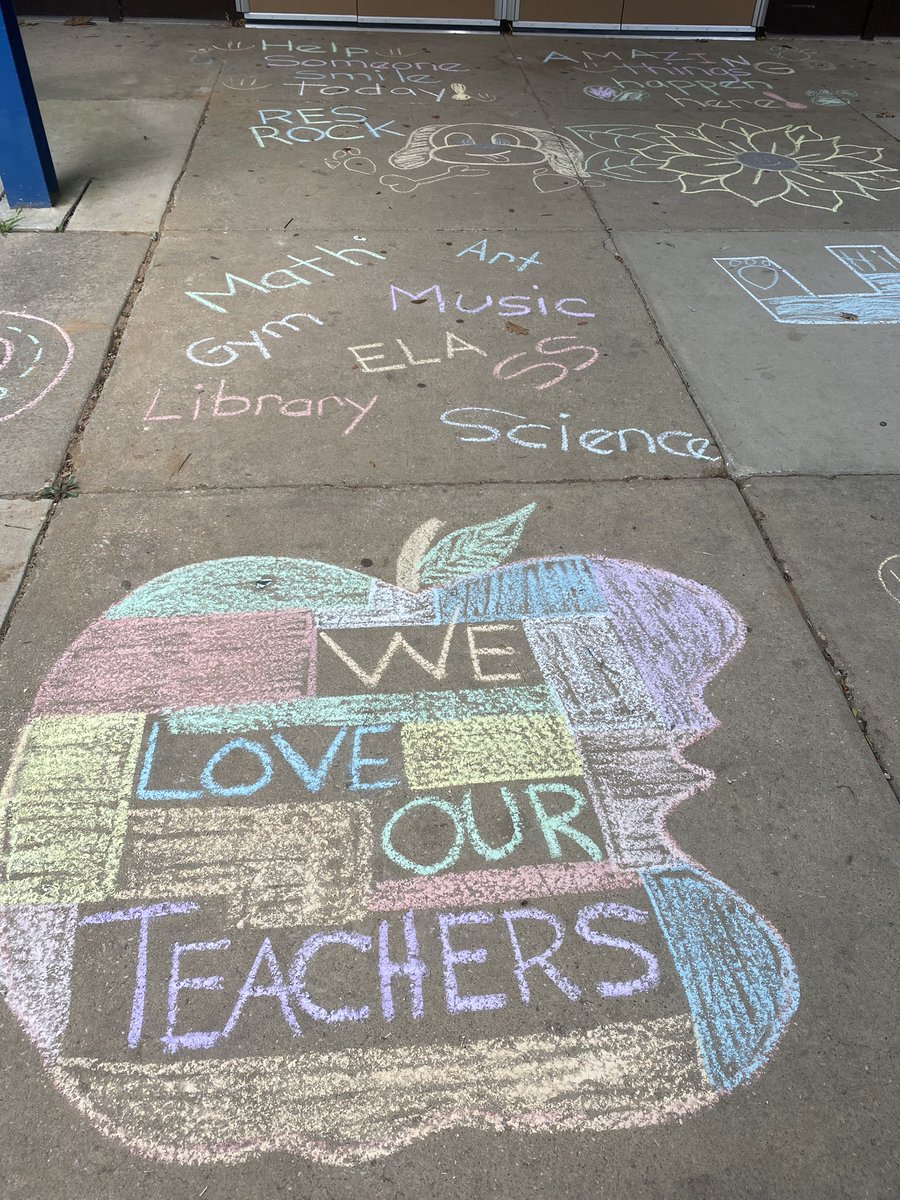 Help
Someone
smile
Today!
AMAZING
things
happen
here
RES
ROCK
Math
Art
Gym
Music
ELA
SS
Library
Science
Hi
WE
LOVE
OUR
TEACHERS